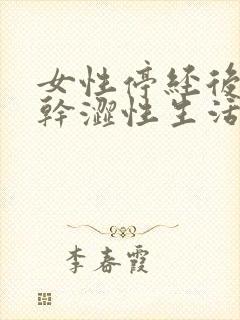 女性停经後
幹澀性生活
李春霞